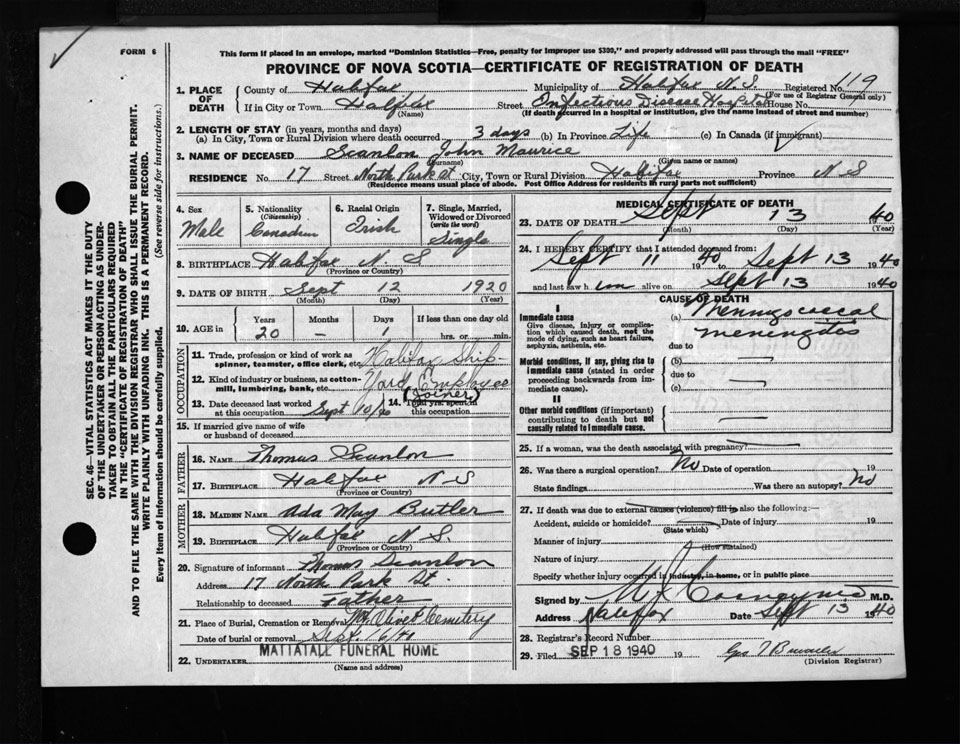 FORM 6
This form if placed in an envelope, marked "Dominion Statistics—Free, penalty for improper use $300," and properly addressed will pass through the mail "FREE"
PROVINCE OF NOVA SCOTIA—CERTIFICATE OF REGISTRATION OF DEATH
SEC. 46—VITAL STATISTICS ACT MAKES IT THE DUTY
OF THE UNDERTAKER OR PERSON ACTING AS UNDER-
TAKER TO OBTAIN ALL THE PARTICULARS REQUIRED
IN THE "CERTIFICATE OF REGISTRATION OF DEATH"
AND TO FILE THE SAME WITH THE DIVISION REGISTRAR WHO SHALL ISSUE THE BURIAL PERMIT.
WRITE PLAINLY WITH UNFADING INK. THIS IS A PERMANENT RECORD.
Every item of information should be carefully supplied. (See reverse side for instructions.)
1. PLACE OF DEATH
County of Halifax Municipality of Halifax N.S. Registered No. 119
(For use of Registrar General only)
If in City or Town Halifax Street Infectious Disease Hospital House No.
(Name) (If death occurred in a hospital or institution, give the name instead of street and number)
2. LENGTH OF STAY (in years, months and days)
(a) In City, Town or Rural Division where death occurred 3 days (b) In Province Life (c) In Canada (if immigrant)
3. NAME OF DECEASED Scanlon John Maurice
(Surname) (Given name or names)
RESIDENCE No. 17 Street North Park St City, Town or Rural Division Halifax Province N S
(Residence means usual place of abode. Post Office Address for residents in rural parts not sufficient)
4. Sex
Male
5. Nationality
(Citizenship)
Canadian
6. Racial Origin
Irish
7. Single, Married,
Widowed or Divorced
(write the word)
Single
8. BIRTHPLACE Halifax N S
(Province or Country)
9. DATE OF BIRTH Sept 12 1920
(Month) (Day) (Year)
10. AGE in
Years Months Days If less than one day old
20 — 1 hrs. or min.
OCCUPATION
11. Trade, profession or kind of work as
spinner, teamster, office clerk, etc. Halifax Ship-
12. Kind of industry or business, as cotton-
mill, lumbering, bank, etc. Yard Employee
(Joiner)
13. Date deceased last worked
at this occupation Sept 10/40
14. Total yrs. spent in
this occupation
15. If married give name of wife
or husband of deceased
FATHER
16. NAME Thomas Scanlon
17. BIRTHPLACE Halifax N S
(Province or Country)
MOTHER
18. MAIDEN NAME Ada May Butler
19. BIRTHPLACE Halifax N S.
(Province or Country)
20. Signature of informant Thomas Scanlon
Address 17 North Park St.
Relationship to deceased Father
21. Place of Burial, Cremation or Removal Mt. Olivet Cemetery
Date of burial or removal Sept. 16/40
MATTATALL FUNERAL HOME
22. UNDERTAKER
(Name and address)
MEDICAL CERTIFICATE OF DEATH
23. DATE OF DEATH Sept 13 1940
(Month) (Day) (Year)
24. I HEREBY CERTIFY that I attended deceased from:
Sept 11 1940 to Sept 13 1940
and last saw him alive on Sept 13 1940
CAUSE OF DEATH
I
Immediate cause
Give disease, injury or complica-
tion which caused death, not the
mode of dying, such as heart failure,
asphyxia, asthenia, etc.
(a)
due to
Morbid conditions, if any, giving rise to
immediate cause (stated in order
proceeding backwards from im-
mediate cause).
(b)
due to
(c)
II
Other morbid conditions (if important)
contributing to death but not
causally related to immediate cause.
25. If a woman, was the death associated with pregnancy?
26. Was there a surgical operation? No Date of operation 19
State findings Was there an autopsy? No
27. If death was due to external causes (violence) fill in also the following:—
Accident, suicide or homicide? Date of injury 19
(State which)
Manner of injury
(How sustained)
Nature of injury
Specify whether injury occurred in industry, in home, or in public place
Signed by M.D.
Address Halifax Date Sept 13 1940
28. Registrar's Record Number
29. Filed SEP 18 1940 19
(Division Registrar)